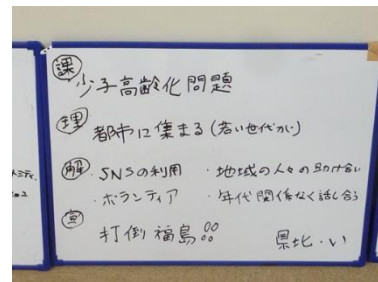 課 少子高齢化問題
理 都市に集まる(若い世代が)
解 ・SNSの利用 ・地域の人々の助け合い
・ボランティア ・年代関係なく話し合う
宣 打倒福島!! 県北・い